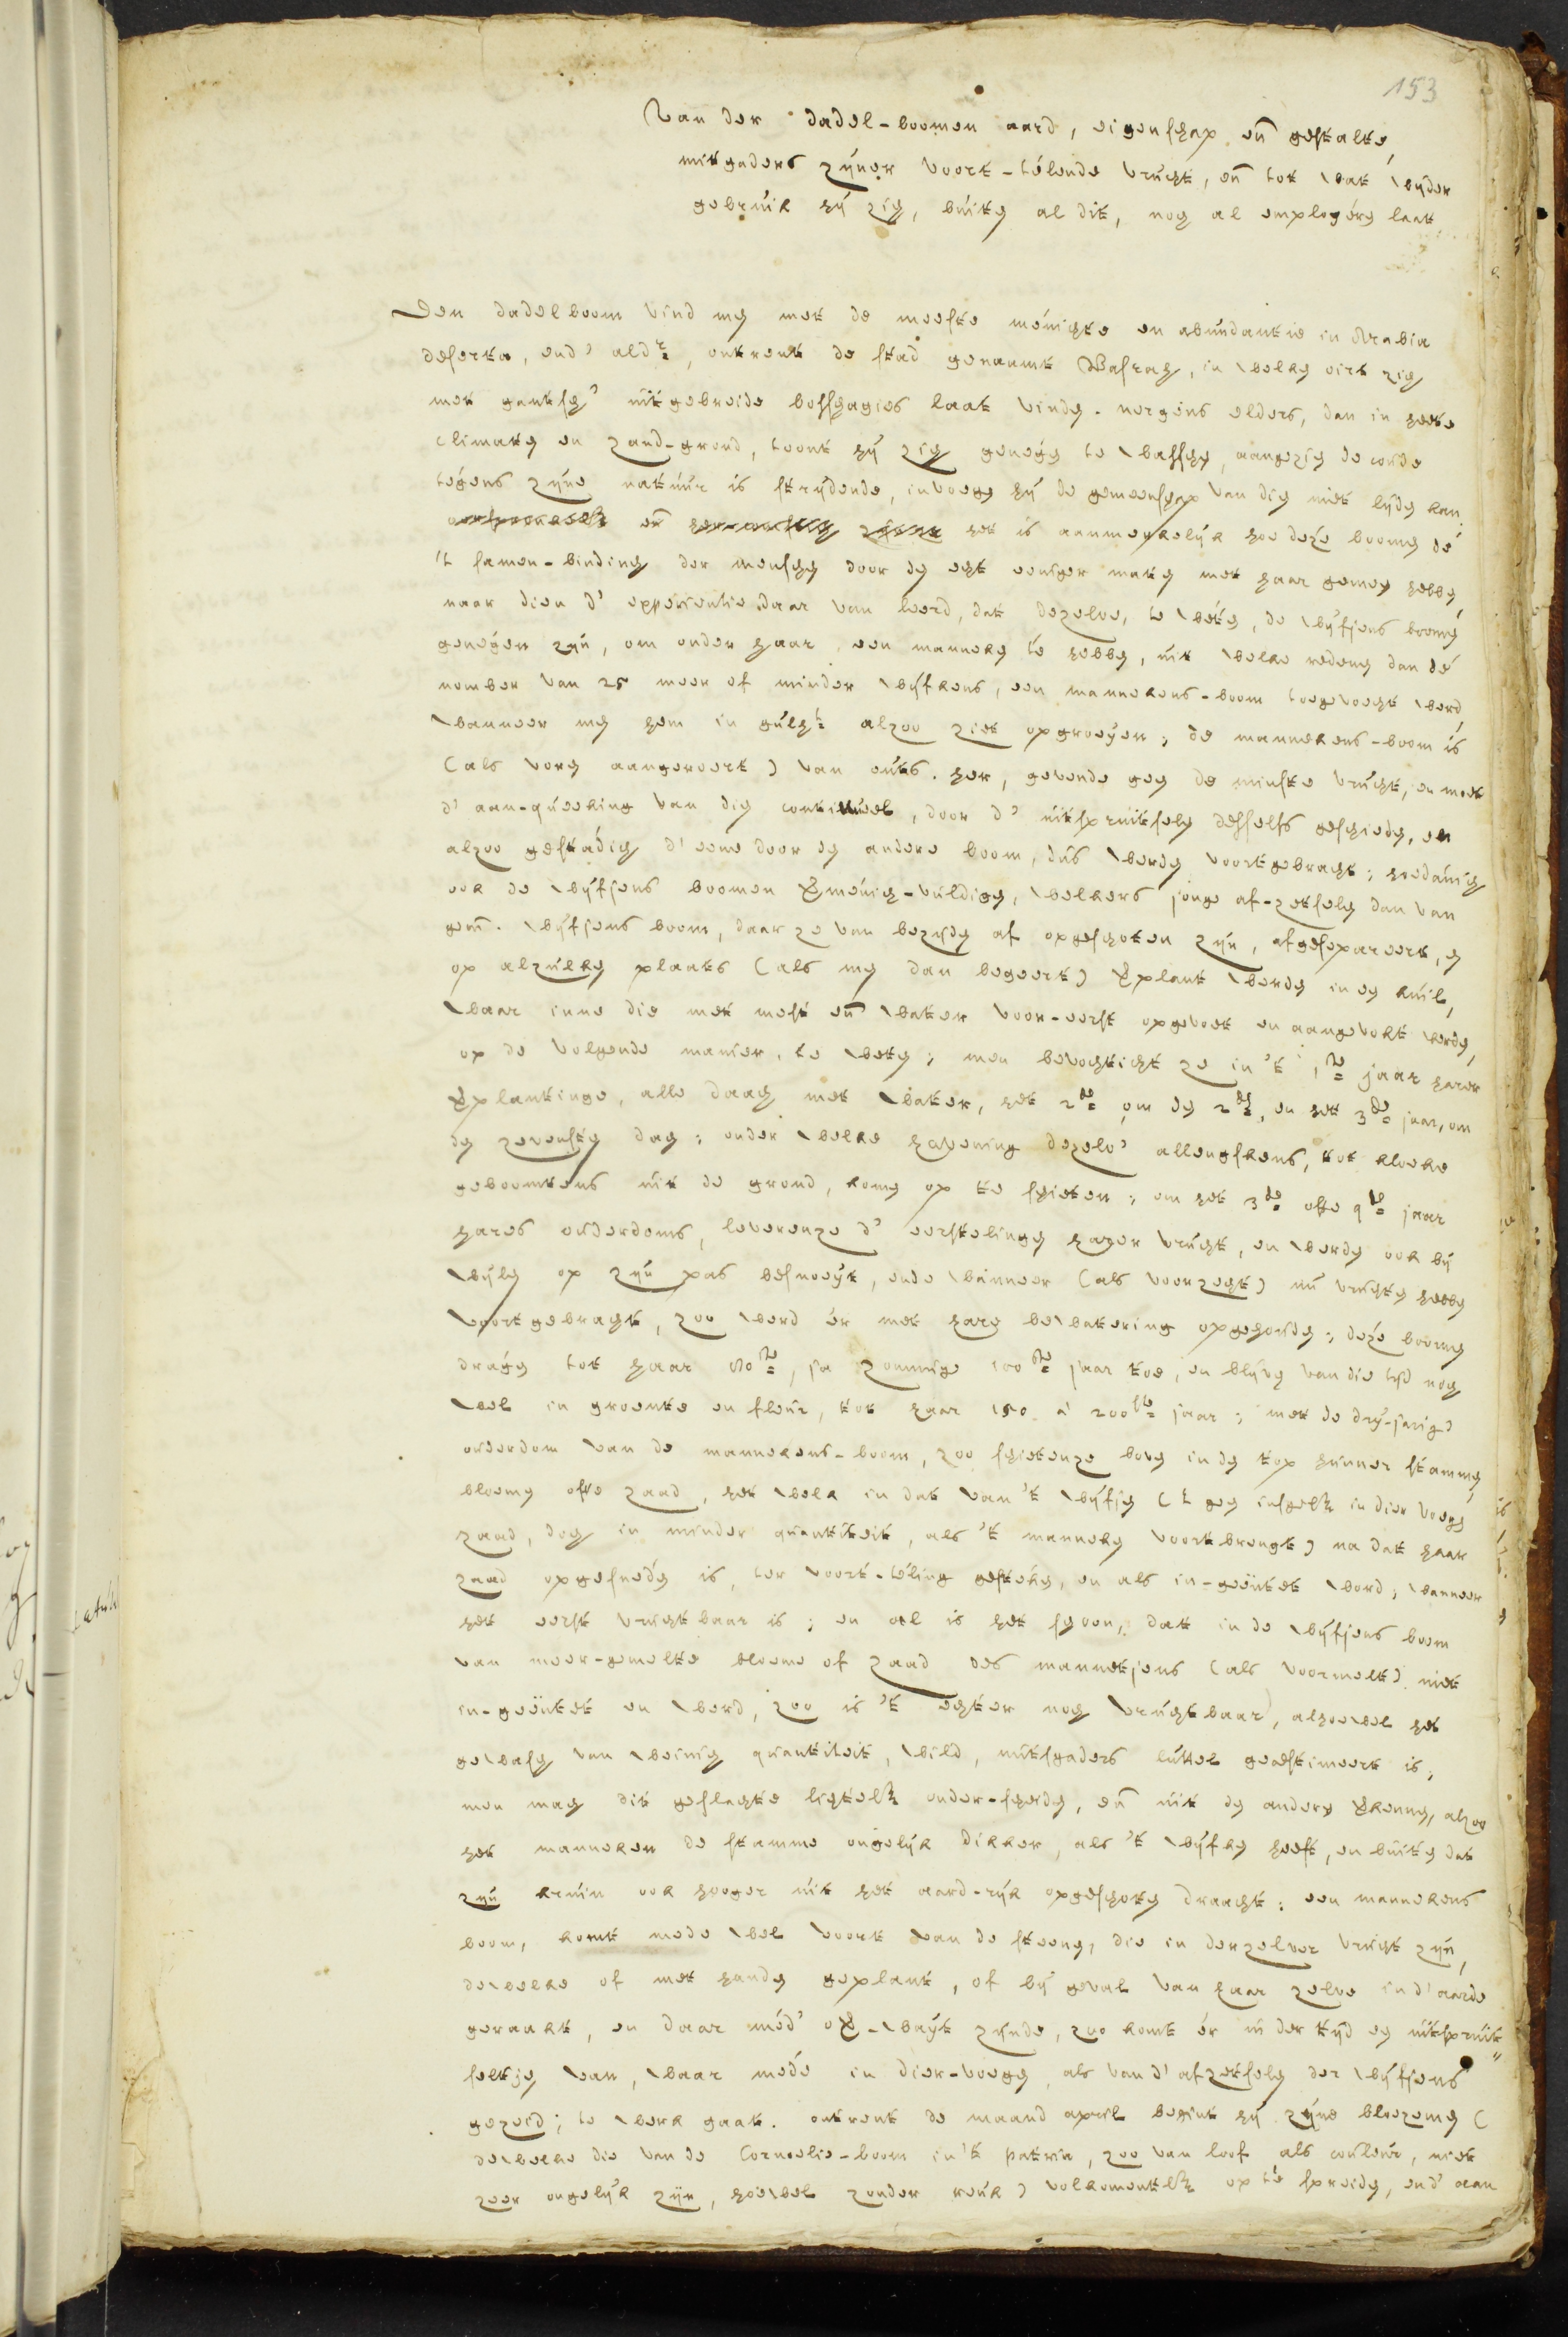 153
Van der dadel-boomen aard, eigenschap en gestalte,
mitgaders zijner voort-télende vrúcht, en tot wat wijder
gebrúik hij zig, búiten al dit, nog al emploijéren laat.
Den dadelboom vind men met de meeste ménichte en abúndantie in Arabia
deserta, end' aldr, entrent de stad genaamt Basrah, in welken oirt zig
met gantsch' úitgebreide bosschagies laat vinden. nergens elders, dan in heete
climaten en zand-grond, toont hij zig genegen te wasschen, aangezien de coúde
tégens zijne natúúr is strijdende, invoegen hij de gemeenschap van dien niet lijden kan
en het is aanmerkelijk hoe deze boomen de
't samen-binding der menschen door den echt eeniger maten met haar gemeen hebben,
naar dien d' experientie daar van leerd, dat dezelve, te wéten, de wijfjens boomen
genégen zijn, om onder haar een manneken te hebben, úit welke redenen dan dé
nomber van 25 meer of minder wijfkens, een mannekens-boom toegevoecht werd,
wanneer men hem in gúlht alzoo ziet opgroeijen; de mannekens-boom is
(als voren aangeroert) van outs her, gevende geen de minste vrúcht, en moet
d' aan-qúeeking van dien continúeel, door d' úitsprúitselen desselfs geschieden, en
alzoo gestádich d' eene door den andere boom, dús werden voortgebracht; hoedanich
ook de wijfjens boomen vermenich-vúldigen, welkers jonge af-zetselen dan van
gem. wijfjens boom, daar ze van bezijden af opgeschoten zijn, afgesepareert, en
op alzúlken plaats (als men dan begeert) verplant werden in een kúil,
waar inne die met mest en water voor-eerst opgevoet en aangevokt werden,
op de volgende manier, te weten; men bevochticht ze in 't 1te jaar harer
verplantinge, alle daach met water, het 2de om den 2den, en het 3de jaar, om
den zevensten dag; onder welke havening dezelv' allengskens, tot kloeke
geboomtens úit de grond, komen op te schieten; om het 3de ofte 4te jaar
hares oúderdoms, leverenze d' eerstelingen harer vrúcht, en werden ook bij
wijlen op zijn pas besnoeijt, ende wanneer (als voorzegt) nú vrúchten hebben
voortgebracht, zoo werd er met hare bewatering opgehoúden; deze boomen
dragen tot haar 80ste, ja zommige 100ste jaar toe, en blijven van die tijd nog
wel in groente en fleúr, tot haar 150 à 200ste jaar; met de drij-jarigen
oúderdom van de mannekens-boom, zoo schietenze boven in den top húnner stammen
bloemen ofte zaad, het welk in dat van 't wijfjen ('t geen insgelijx in dier voegen
zaad, dog in minder qúantiteit, als 't manneken voortbrengt) na dat haar
zaad opgesneden is, ter voort-téling gesteken, en als in-geëntet word; wanneer
het eerst vrúchtbaar is; en al is het schoon, dat in de wijfjens boom
van meer-gemelte bloeme of zaad des mannetjens (als voormelt) niet
in-geëntet en werd, zoo is 't echter nog vrúchtbaar, alhoewel het
gewasch van weinig qúantiteit, wild, mitsgaders lúttel geæstimeert is;
men mag dit geslachte lichtelijk onder-scheiden, en úit den anderen verkennen, alzoo
het manneken de stamme ongelijk dikker, als 't wijfken heeft, en búiten dat
zijn krúin ook hooger úit het aard-rijk opgeschoten draacht; een mannekens
boom, komt mede wel voort van de steenen, die in derzelver vrúcht zijn,
dewelke of met handen geplant, of bij geval van haar zelve in d' aarde
geraakt, en daar méd' over-waijt zijnde, zoo komt ér in der tijd een úitsprúit"
seltjen van, waar mede in dier-voegen, als van d' afzetselen der wijfjens
gezeid; te werk gaat. ontrent de maand april begint hij zijne bloezemen (
dewelke die van de Corneelie-boom in 't patria, zoo van loof als coúleúr, niet
zeer ongelijk zijn, hoewel zonder reúk) volkomentlijk op te spreiden, end' aan